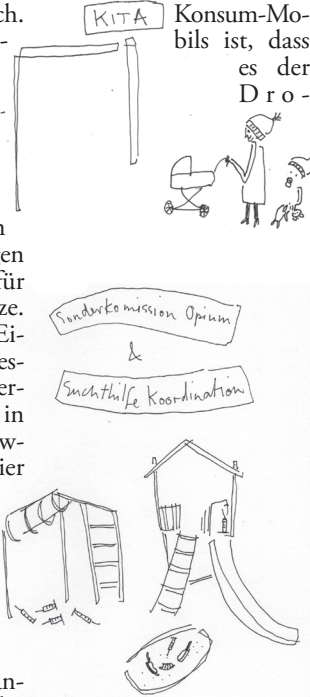 ch.
-
-
n
gen
für
ze.
Ei-
es-
er-
in
w-
ier
KITA
Konsum-Mo-
bils ist, dass
es der
D r o -
Sonderkomission Opium
&
Suchthilfe Koordination